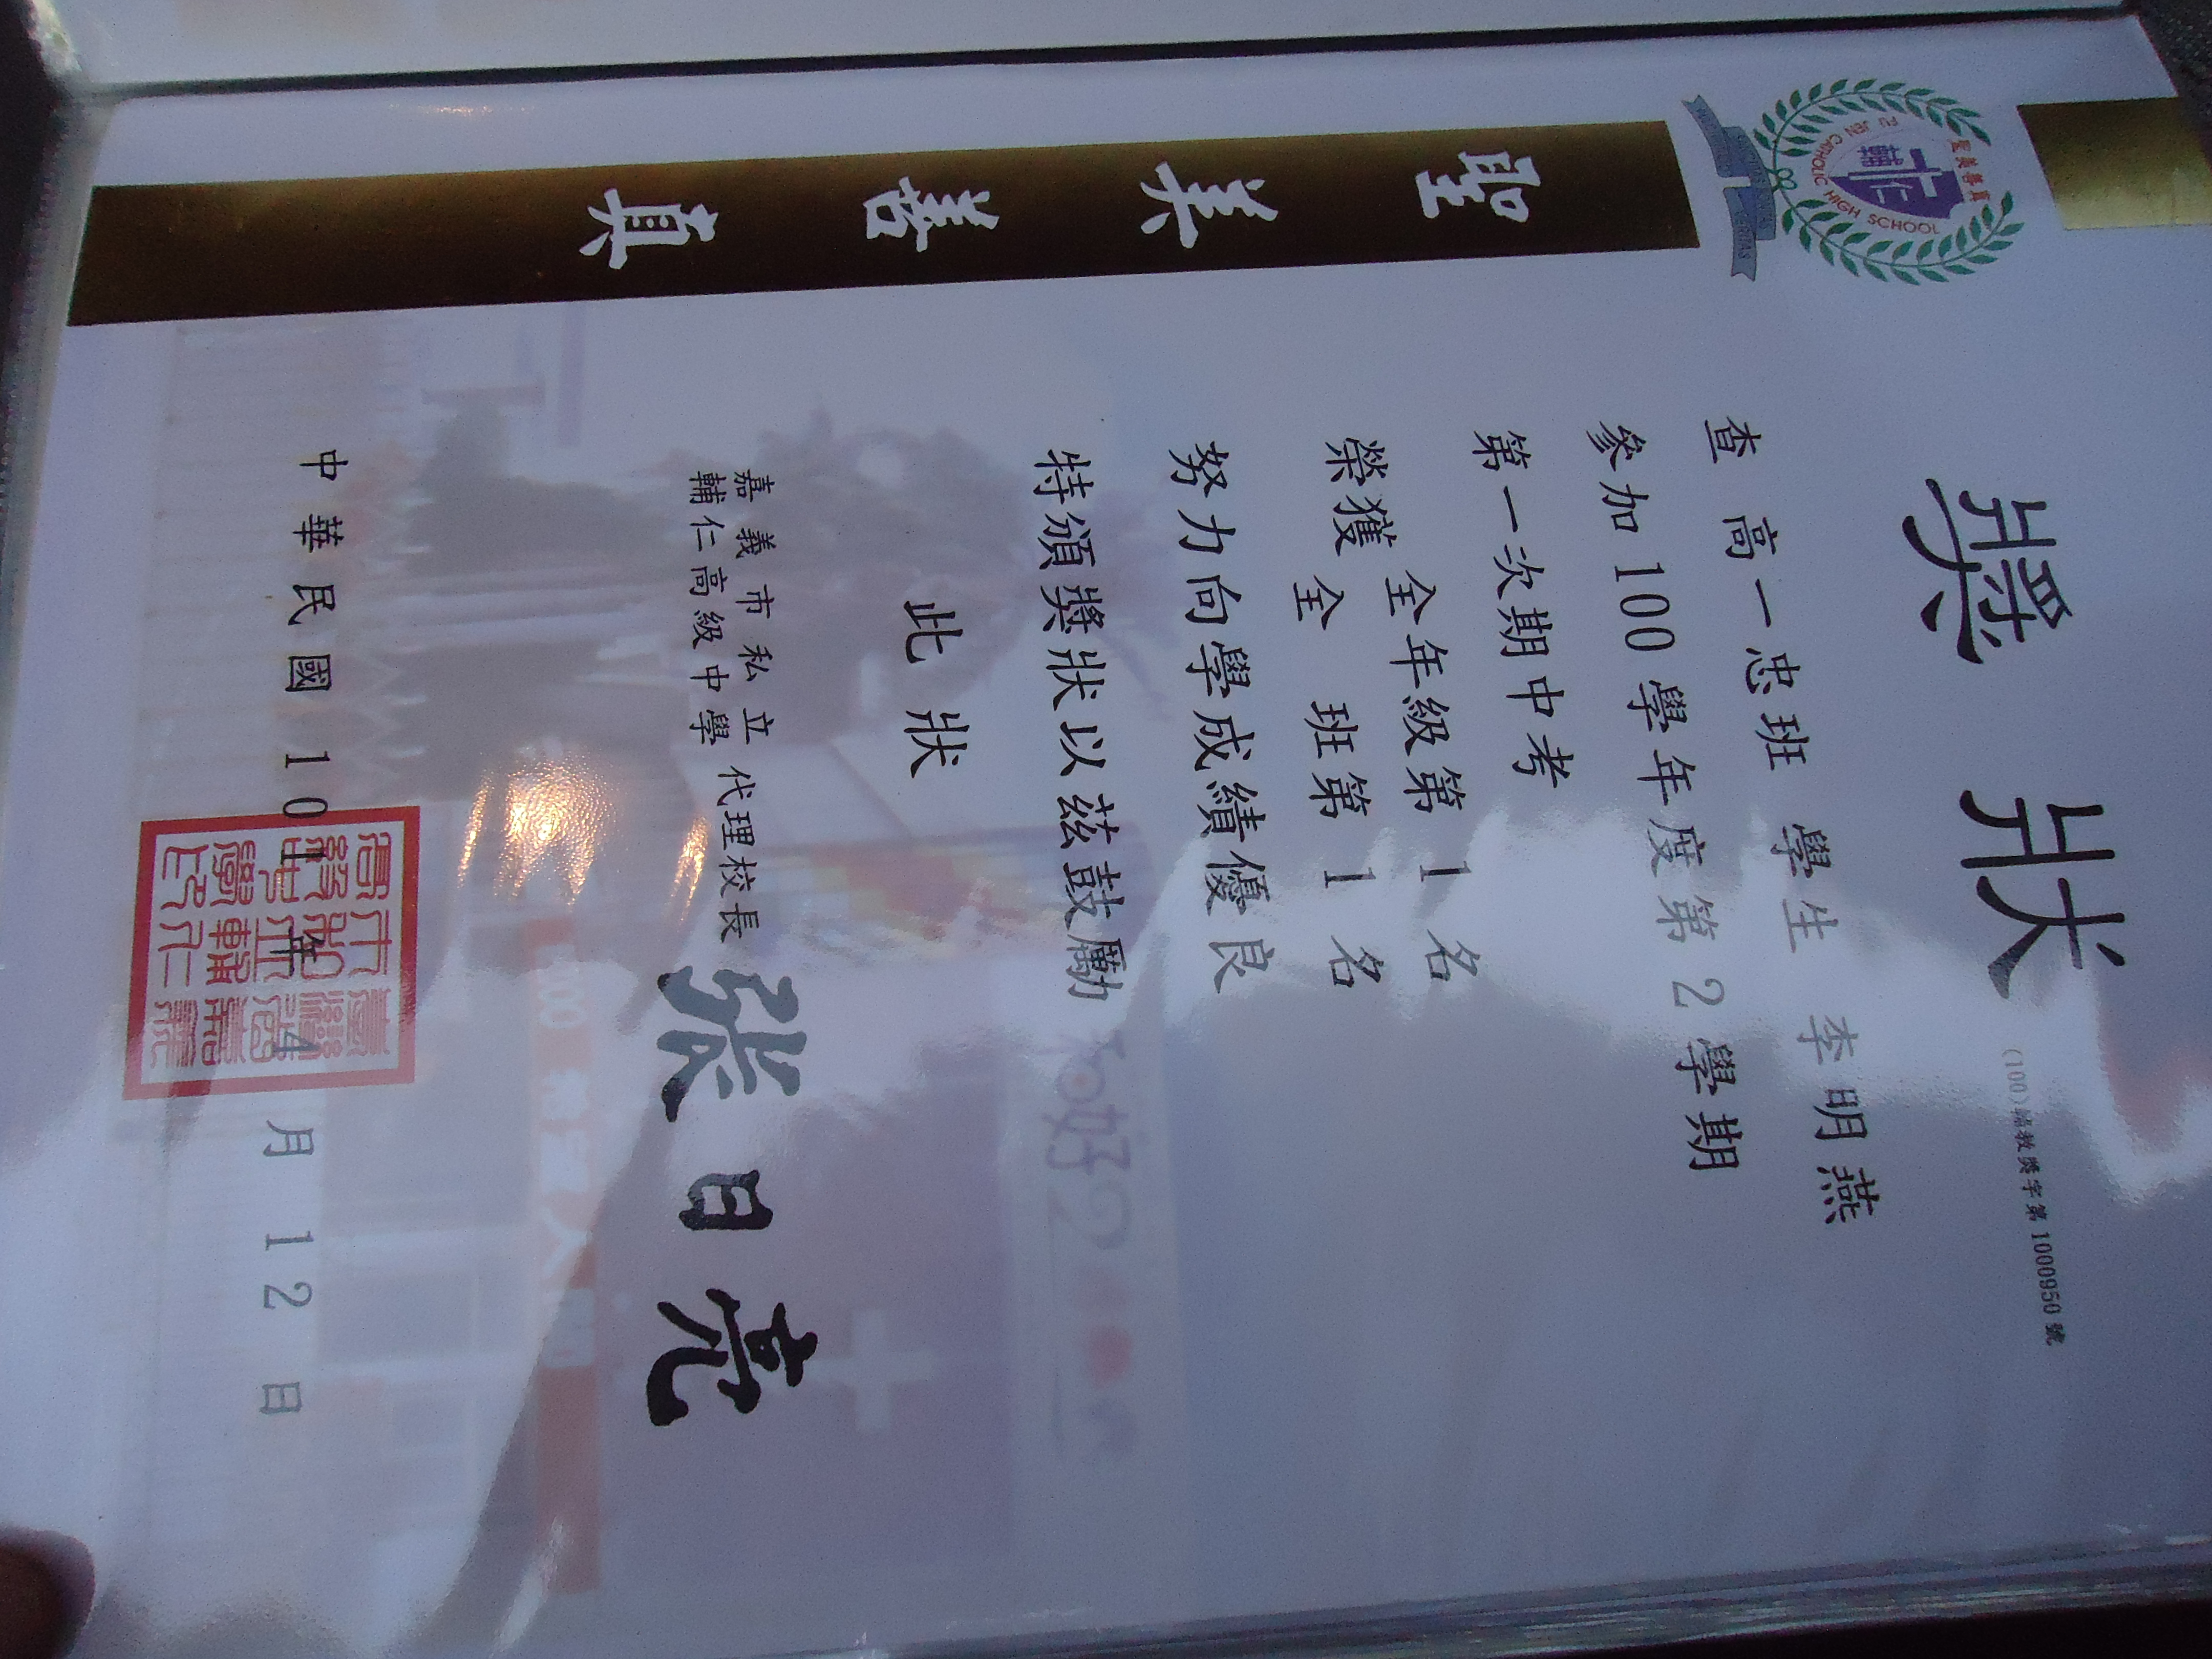 聖美善真
聖美善真
輔仁
FU JEN CATHOLIC HIGH SCHOOL
獎狀
(100)
教獎字第 1000950 號
查 高一忠班 學生 李明燕
參加 100 學年度第 2 學期
第一次期中考
榮獲 全年級第 1 名
全 班第 1 名
努力向學成績優良
特頒獎狀以茲鼓勵
此狀
嘉義市私立
輔仁高級中學 代理校長 張日亮
中華民國 101 年 4 月 12 日